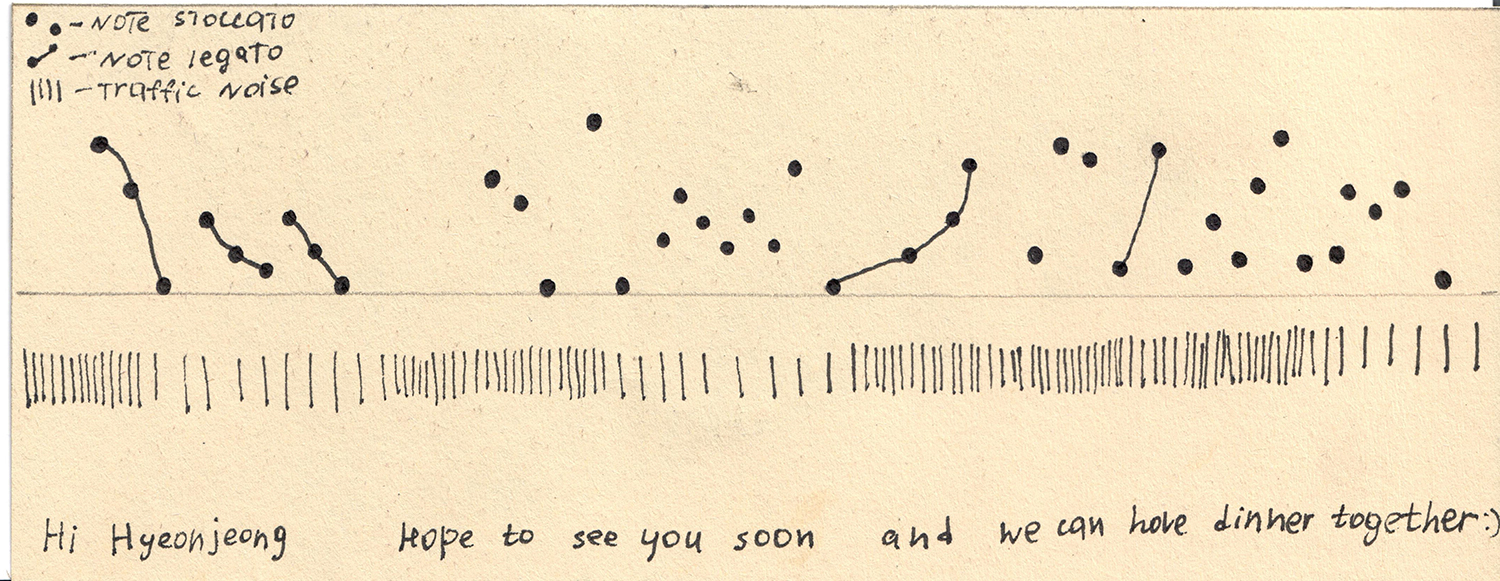 - NOTE STOCCATO
- NOTE legATO
- Traffic Noise
Hi Hyeonjeong Hope to see you soon and we can hove dinner together:)